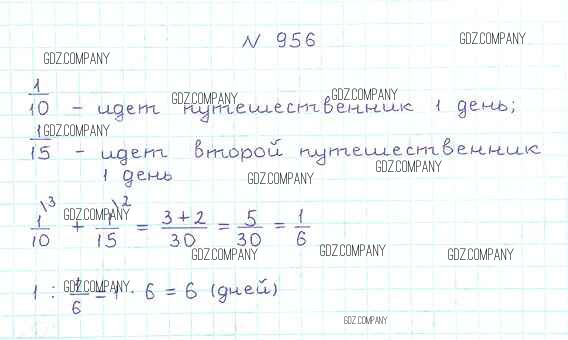 N 956
GDZ.COMPANY
GDZ.COMPANY
1/10 - идет путешественник 1 день;
GDZ.COMPANY
GDZ.COMPANY
GDZ.COMPANY
1/15 - идет второй путешественник
1 день
GDZ.COMPANY
GDZ.COMPANY
1/10 \3 + 1/15 \2 = 3+2/30 = 5/30 = 1/6
GDZ.COMPANY
GDZ.COMPANY
GDZ.COMPANY
GDZ.COMPANY
1 : 1/6 = 1 · 6 = 6 (дней)
GDZ.COMPANY
GDZ.COMPANY